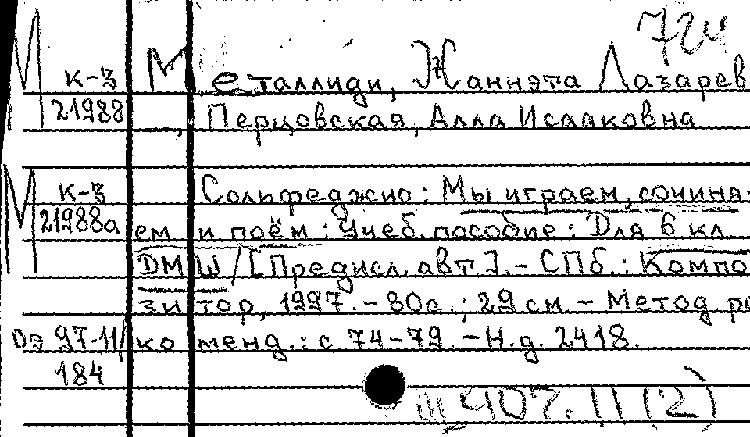 724
М к-з Металлиди, Жаннэта Лазарев
21988 Перцовская, Алла Исааковна
М к-з Сольфеджио: Мы играем, сочиня-
21988а ем и поём: Учеб. пособие: Для 6 кл.
ДМШ/[Предисл. авт.]. - СПб.: Компо
зитор, 1997. - 80с.; 29 см. - Метод. ре
Оэ 97-11/ коменд.: с 74-79. - Н.д. 2418.
184
407. 11 (2)